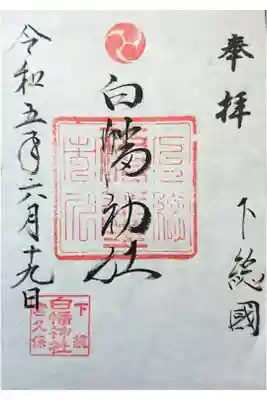 奉拝
下総國
白幡神社
令和五年六月十九日
下総
白幡神社
宮久保